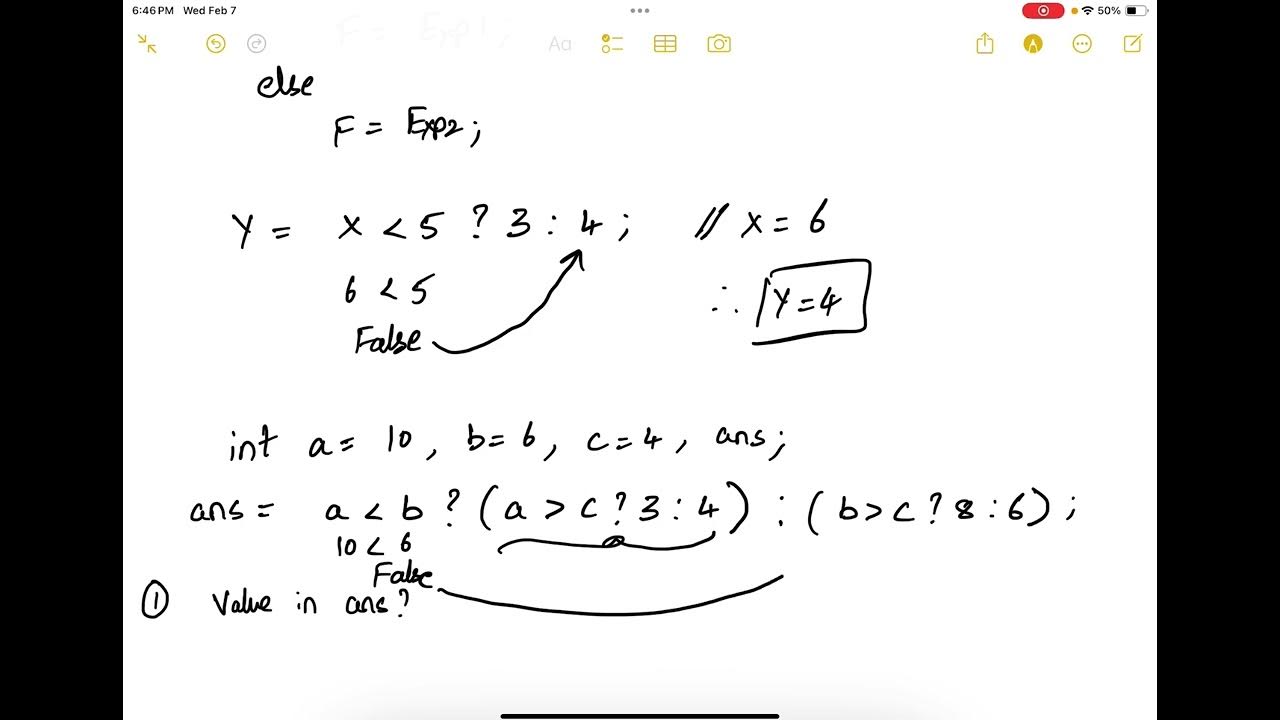 6:46 PM Wed Feb 7
50%
F = Exp1;
Aa
else
F = Exp2;
Y = X < 5 ? 3 : 4; // X = 6
6 < 5
∴ Y=4
False
int a= 10, b=6, c=4, ans;
ans = a < b ? (a > c ? 3 : 4) : (b>c ? 8 : 6);
10 < 6
False
① Value in ans?